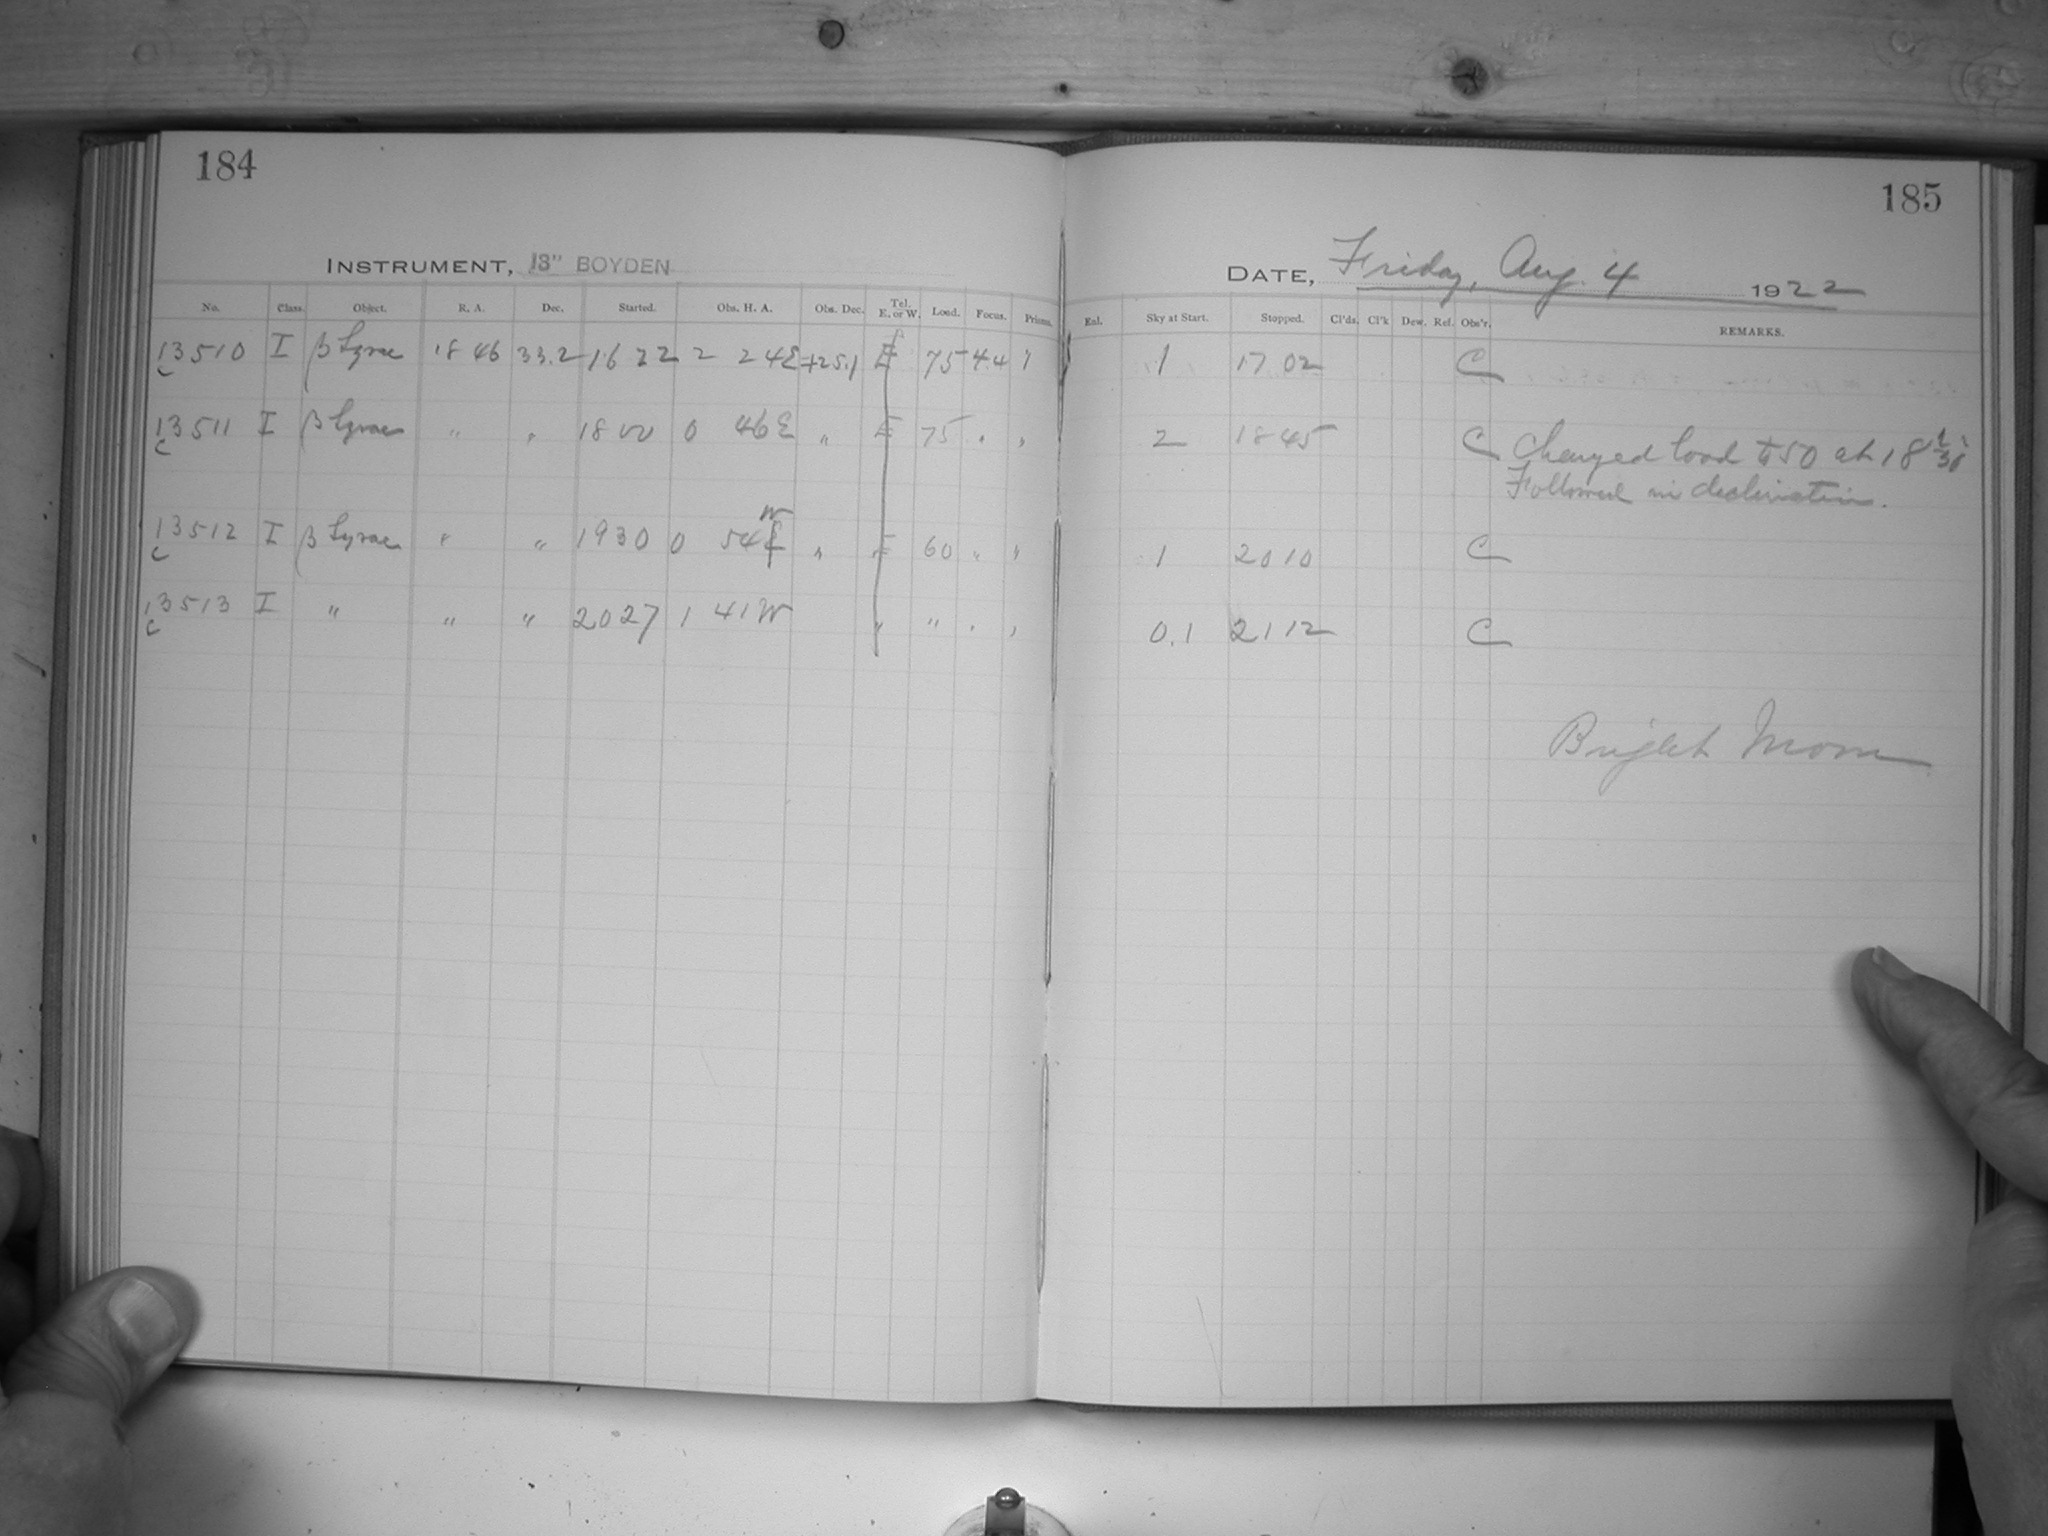 184
185
INSTRUMENT, 13" BOYDEN
DATE, Friday, Aug. 4 1922
No. Class. Object. R. A. Dec. Started. Obs. H. A. Obs. Dec. Tel. E. or W. Load. Focus. Prisms. Exl. Sky at Start. Stopped. Cl'ds. Cl'k Dew. Ref. Obs'r. REMARKS.
13510 I β Lyrae 18 46 33.2 16 22 2 24E +25.1 E 75 4.4 1 1 17 02 C
C
13511 I β Lyrae " " 18 00 0 46E " E 75 " " 2 18 45 C Changed load to 50 at 18
C
Followed in declination.
W
13512 I β Lyrae " " 19 30 0 54 " E 60 " " 1 20 10 C
C
13513 I " " " 20 27 1 41W " " " " 0.1 21 12 C
C
Bright Moon